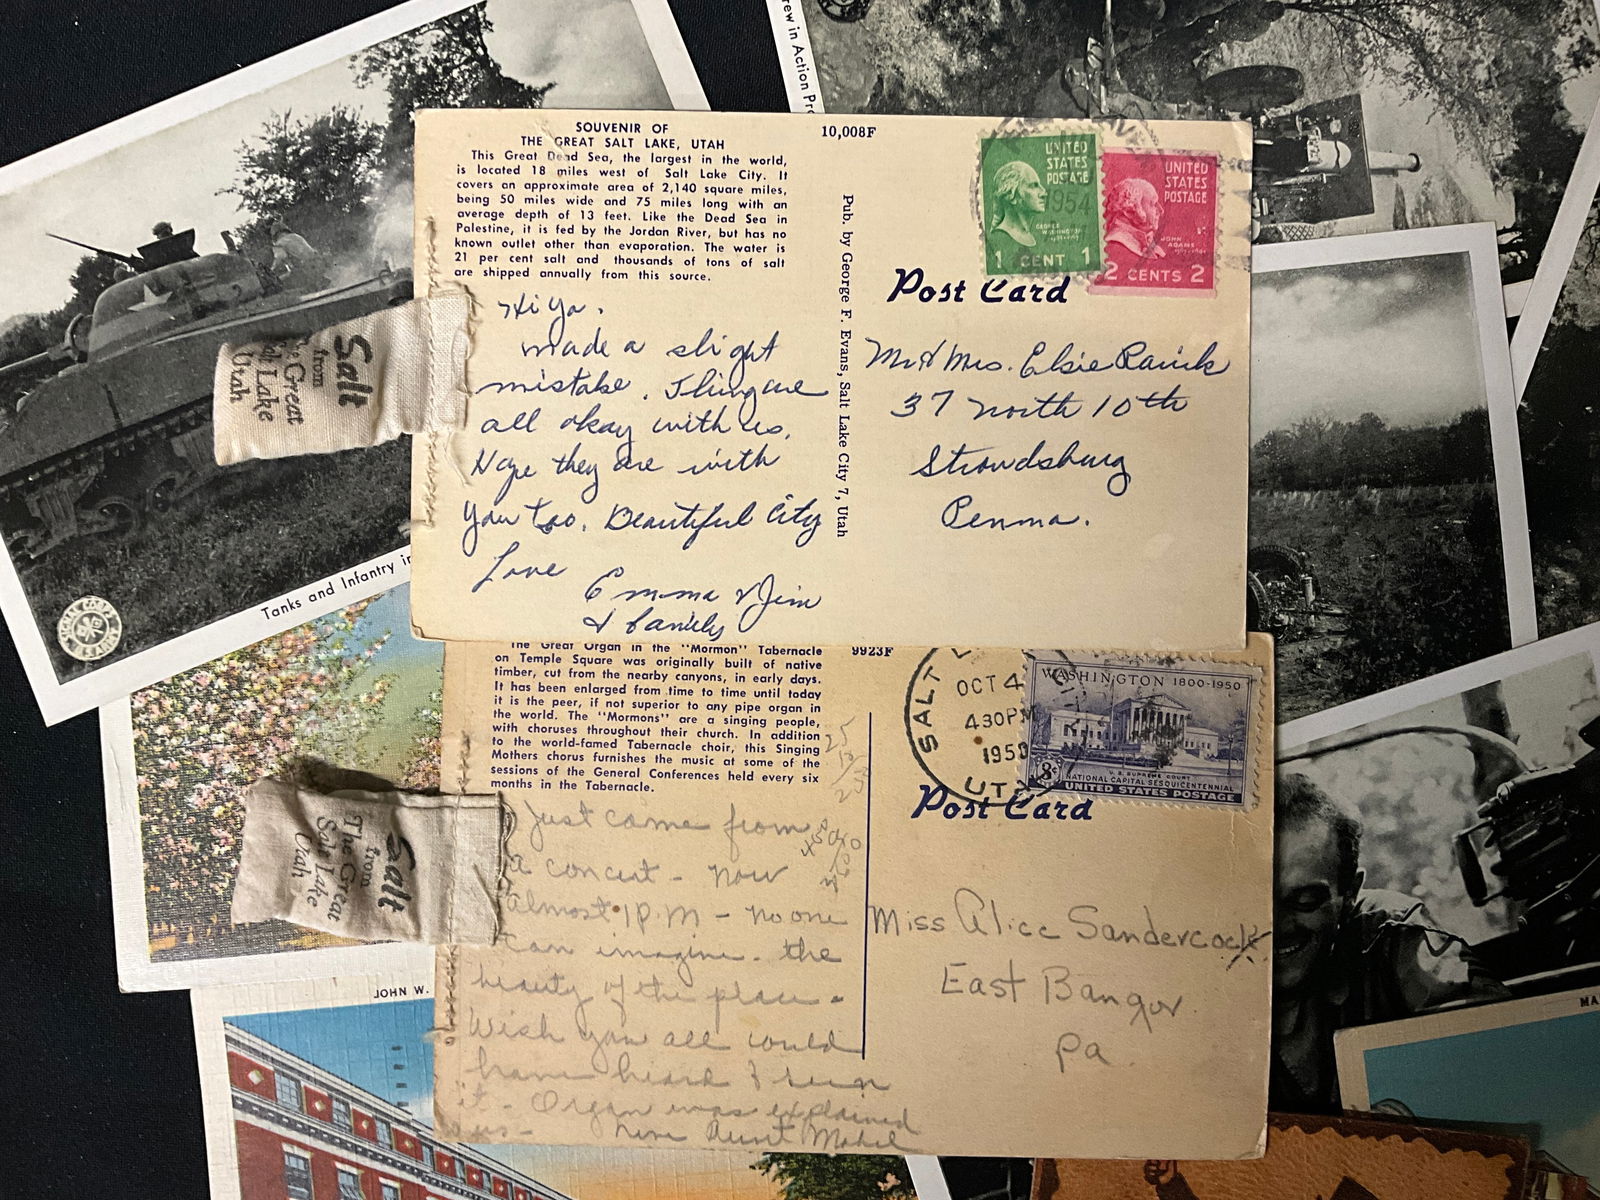 rew in Action Pr
SOUVENIR OF
THE GREAT SALT LAKE, UTAH
This Great Dead Sea, the largest in the world,
is located 18 miles west of Salt Lake City. It
covers an approximate area of 2,140 square miles,
being 50 miles wide and 75 miles long with an
average depth of 13 feet. Like the Dead Sea in
Palestine, it is fed by the Jordan River, but has no
known outlet other than evaporation. The water is
21 per cent salt and thousands of tons of salt
are shipped annually from this source.
10,008F
UNITED
STATES
POSTAGE
1954
GEORGE
WASHINGTON
1 CENT 1
UNITED
STATES
POSTAGE
JOHN
ADAMS
2 CENTS 2
Post Card
Pub. by George F. Evans, Salt Lake City 7, Utah
Hi Ya.
made a slight
mistake. Things are
all okay with us.
Hope they are with
you too. Beautiful City
Love
Emma & Jim
& family
Mr & Mrs. Elsie
37 North 10th
Stroudsburg
Penna.
Salt
from
The Great
Salt Lake
Utah
Tanks and Infantry in
SIGNAL CORPS
U.S. ARMY
The Great Organ in the "Mormon" Tabernacle
on Temple Square was originally built of native
timber, cut from the nearby canyons, in early days.
It has been enlarged from time to time until today
it is the peer, if not superior to any pipe organ in
the world. The "Mormons" are a singing people,
with choruses throughout their church. In addition
to the world-famed Tabernacle choir, this Singing
Mothers chorus furnishes the music at some of the
sessions of the General Conferences held every six
months in the Tabernacle.
9923F
SALT L
OCT 4
430PM
1950
UTAH
WASHINGTON 1800-1950
8¢
U.S. SUPREME COURT
NATIONAL CAPITAL SESQUICENTENNIAL
UNITED STATES POSTAGE
Post Card
Just came from
a concert - now
almost 1 P.M - no one
can imagine. the
beauty of the place -
Wish you all could
have heard & seen
it - Organ was explained
us - Aunt Mabel
Miss Alice Sandercock
East Bangor
Pa.
Salt
from
The Great
Salt Lake
Utah
JOHN W.
MA